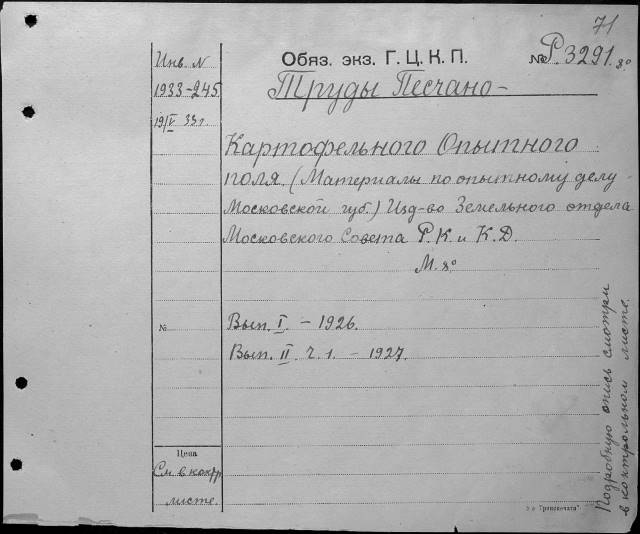 71
Обяз. экз. Г. Ц. К. П.
№Р.3291.8°
Инв. N
1933-245
19/V 33 г.
Труды Песчано-
Картофельного Опытного
поля. (Материалы по опытному делу
Московской губ.) Изд-во Земельного отдела
Московского Совета Р.К. и К.Д.
М. 8°
№
Вып. I. – 1926.
Вып. II. ч. 1. – 1927.
Цена
См. в контр
листе.
Подробную опись смотри
в контрольном листе.
"Транспечати"